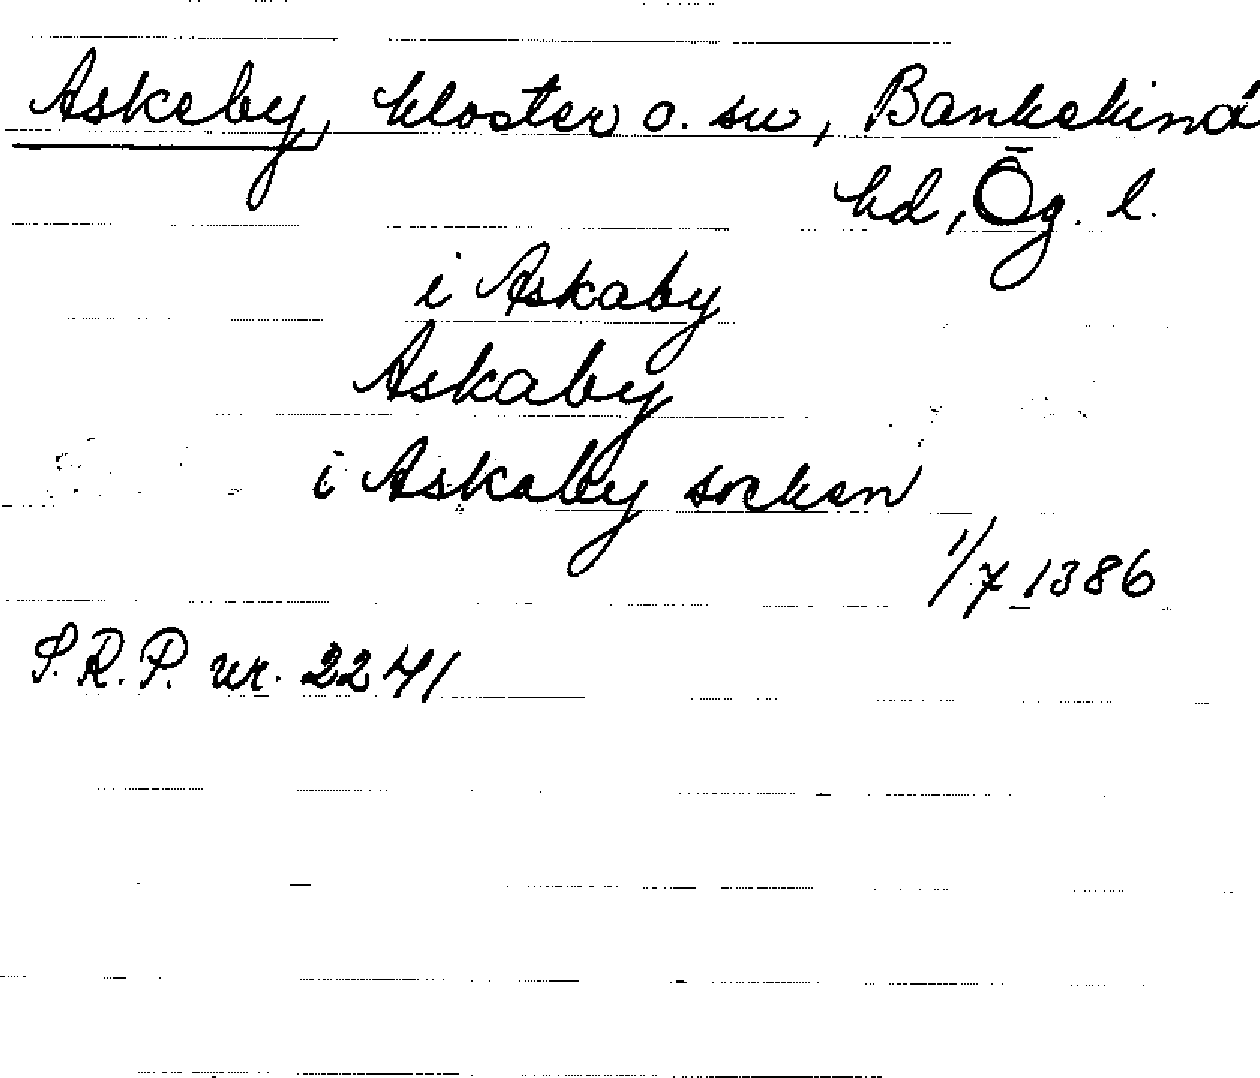 Askeby, kloster o. sn, Bankekind
hd, Ög. l.
i Askaby
Askaby
i Askaby socken
1/7 1386
S.R.P. nr. 2241